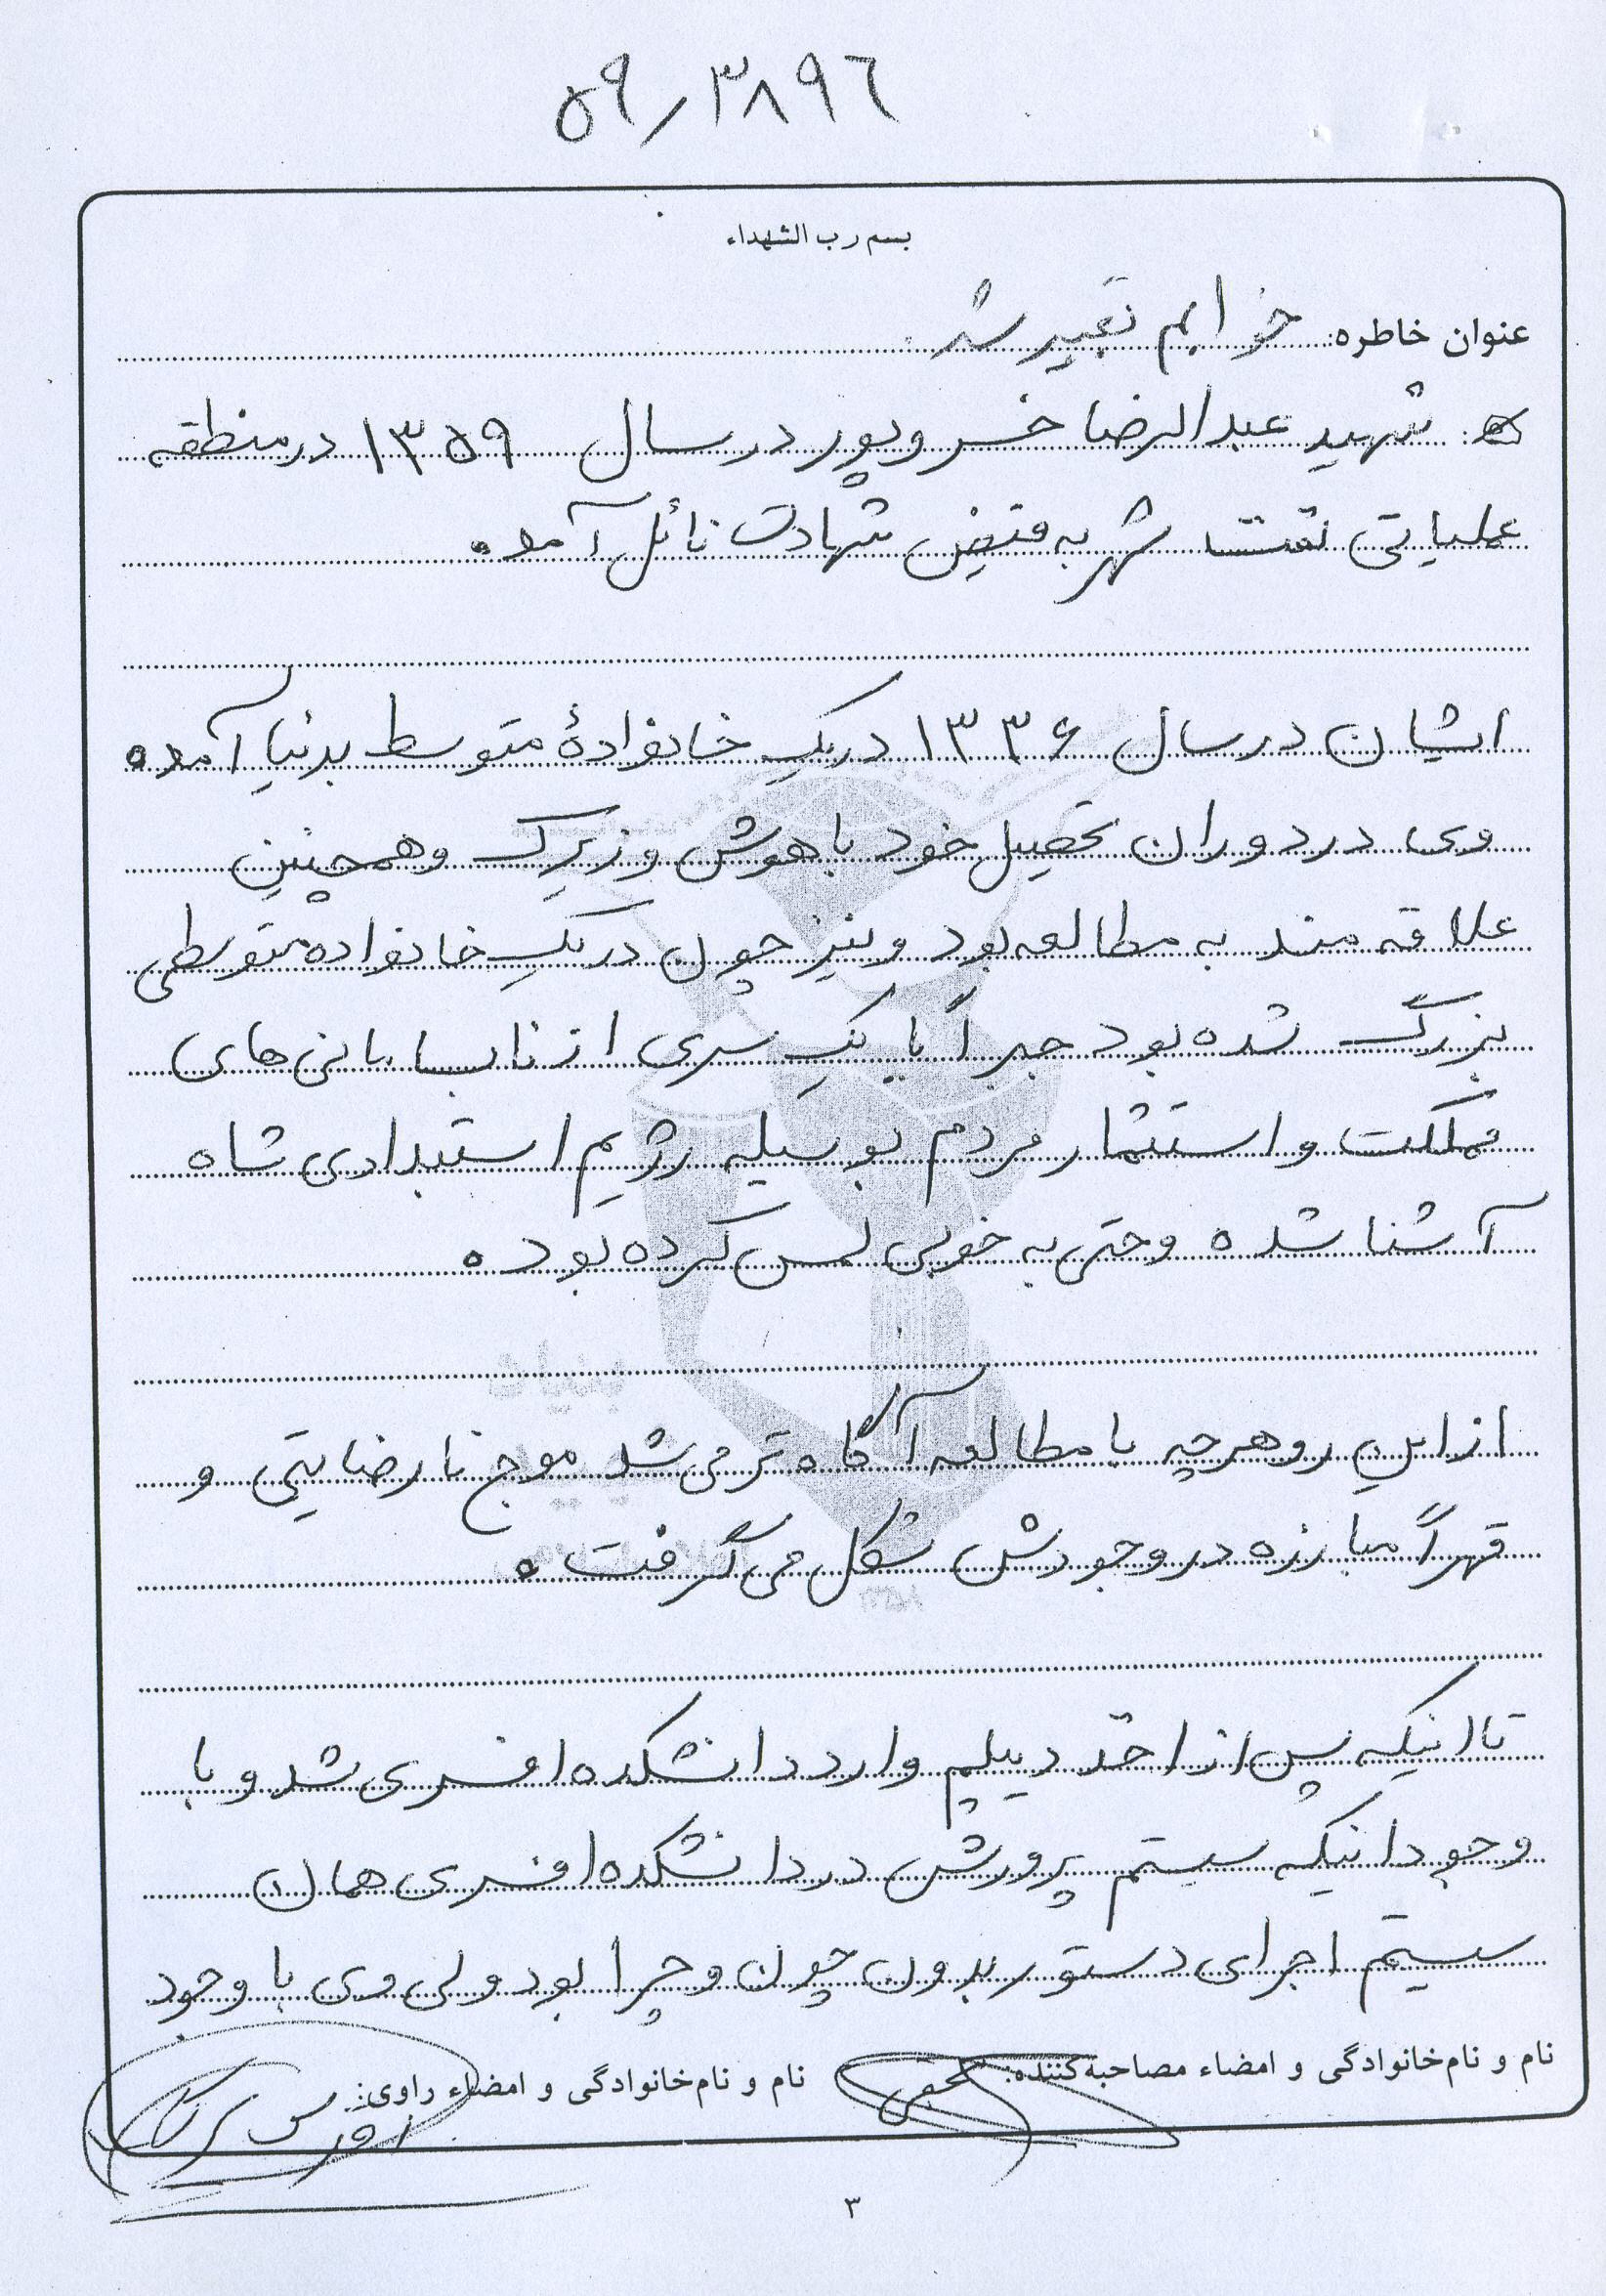 ۵۹/۳۸۹۶
بسم رب الشهداء
عنوان خاطره: خوابم تعبیر شد.
شهید عبدالرضا خسروپور در سال ۱۳۵۹ در منطقه
عملیاتی نفت شهر به فیض شهادت نائل آمده.
ایشان در سال ۱۳۳۶ در یک خانوادهٔ متوسط بدنیا آمده
وی در دوران تحصیل خود باهوش و زیرک و همچنین
علاقه مند به مطالعه بود و نیز چون در یک خانواده متوسطی
بزرگ شده بود جبراً با یک سری از نابسامانی های
مملکت و استثمار مردم بوسیله رژیم استبدادی شاه
آشنا شده و حتی به خوبی لمس کرده بود.
از این رو هرچه با مطالعه آگاه تر می شد موج نارضایتی و
قهراً مبارزه در وجودش شکل می گرفت.
تا اینکه پس از اخذ دیپلم وارد دانشکده افسری شد و با
وجود اینکه سیستم پرورش در دانشکده افسری همان
سیستم اجرای دستور بدون چون و چرا بود ولی وی با وجود
نام و نام خانوادگی و امضاء مصاحبه کننده: نام و نام خانوادگی و امضاء راوی:
۳